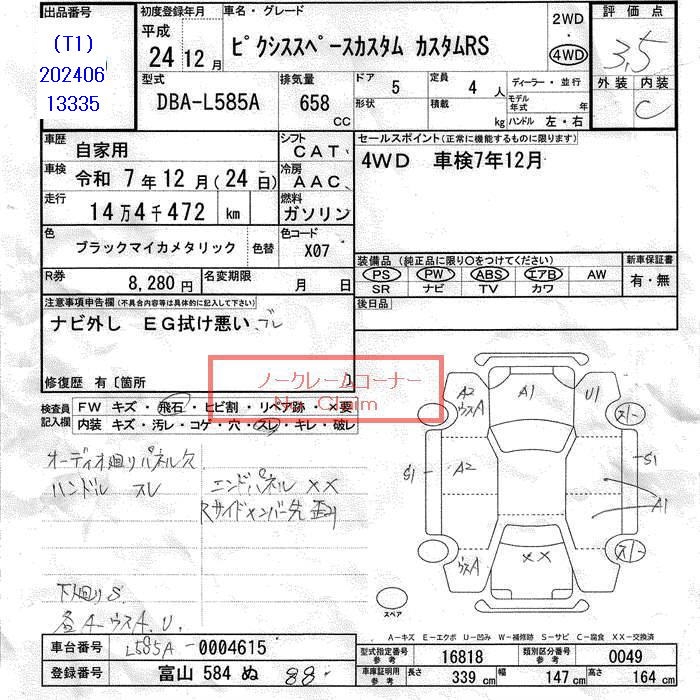 出品番号
(T1)
202406
13335
初度登録年月
平成
24 12 月
車名・グレード
ピクシススペースカスタム カスタムRS
2WD
・
4WD
評価点
3,5
外装 内装
C
型式
DBA-L585A
排気量
658
CC
ドア 5
定員 4 人
形状
積載 kg
ディーラー・並行
モデル年式 年
ハンドル 左・右
車歴 自家用
シフト CAT
車検 令和 7年12月(24日)
冷房 AAC
走行 14万4千472 km
燃料 ガソリン
色 ブラックマイカメタリック 色替
色コード X07
R券 8,280円
名変期限 月 日
セールスポイント(正常に機能するものに限ります)
4WD 車検7年12月
装備品 (純正品に限り〇をつけてください)
PS PW ABS エアB AW
SR ナビ TV カワ
新車保証書
有・無
後日品
注意事項申告欄(不具合内容等は具体的に記入して下さい)
ナビ外し EG拭け悪い ブレ
修復歴 有〔箇所 〕
ノークレームコーナー
No Claim
検査員記入欄
FW キズ・飛石・ヒビ割・リペア跡・×要
内装 キズ・汚レ・コゲ・穴・スレ・キレ・破レ
オーディオ廻りパネル欠
ハンドル スレ
エンドパネル XX
Rサイドメンバー先 歪
下廻りS
各A-ウスA.U.
A2
ウスA
A1
U1
スレ
S1
A2
S1
A1
ウスA
XX
スレ
スペア
A-キズ E-エクボ U-凹み W-補修跡 S-サビ C-腐食 XX-交換済
車台番号 L585A-0004615
登録番号 富山 584 ぬ 88
型式指定番号 参考 16818
類別区分番号 参考 0049
車庫証明用 参考 長さ 339 cm 幅 147 cm 高さ 164 cm